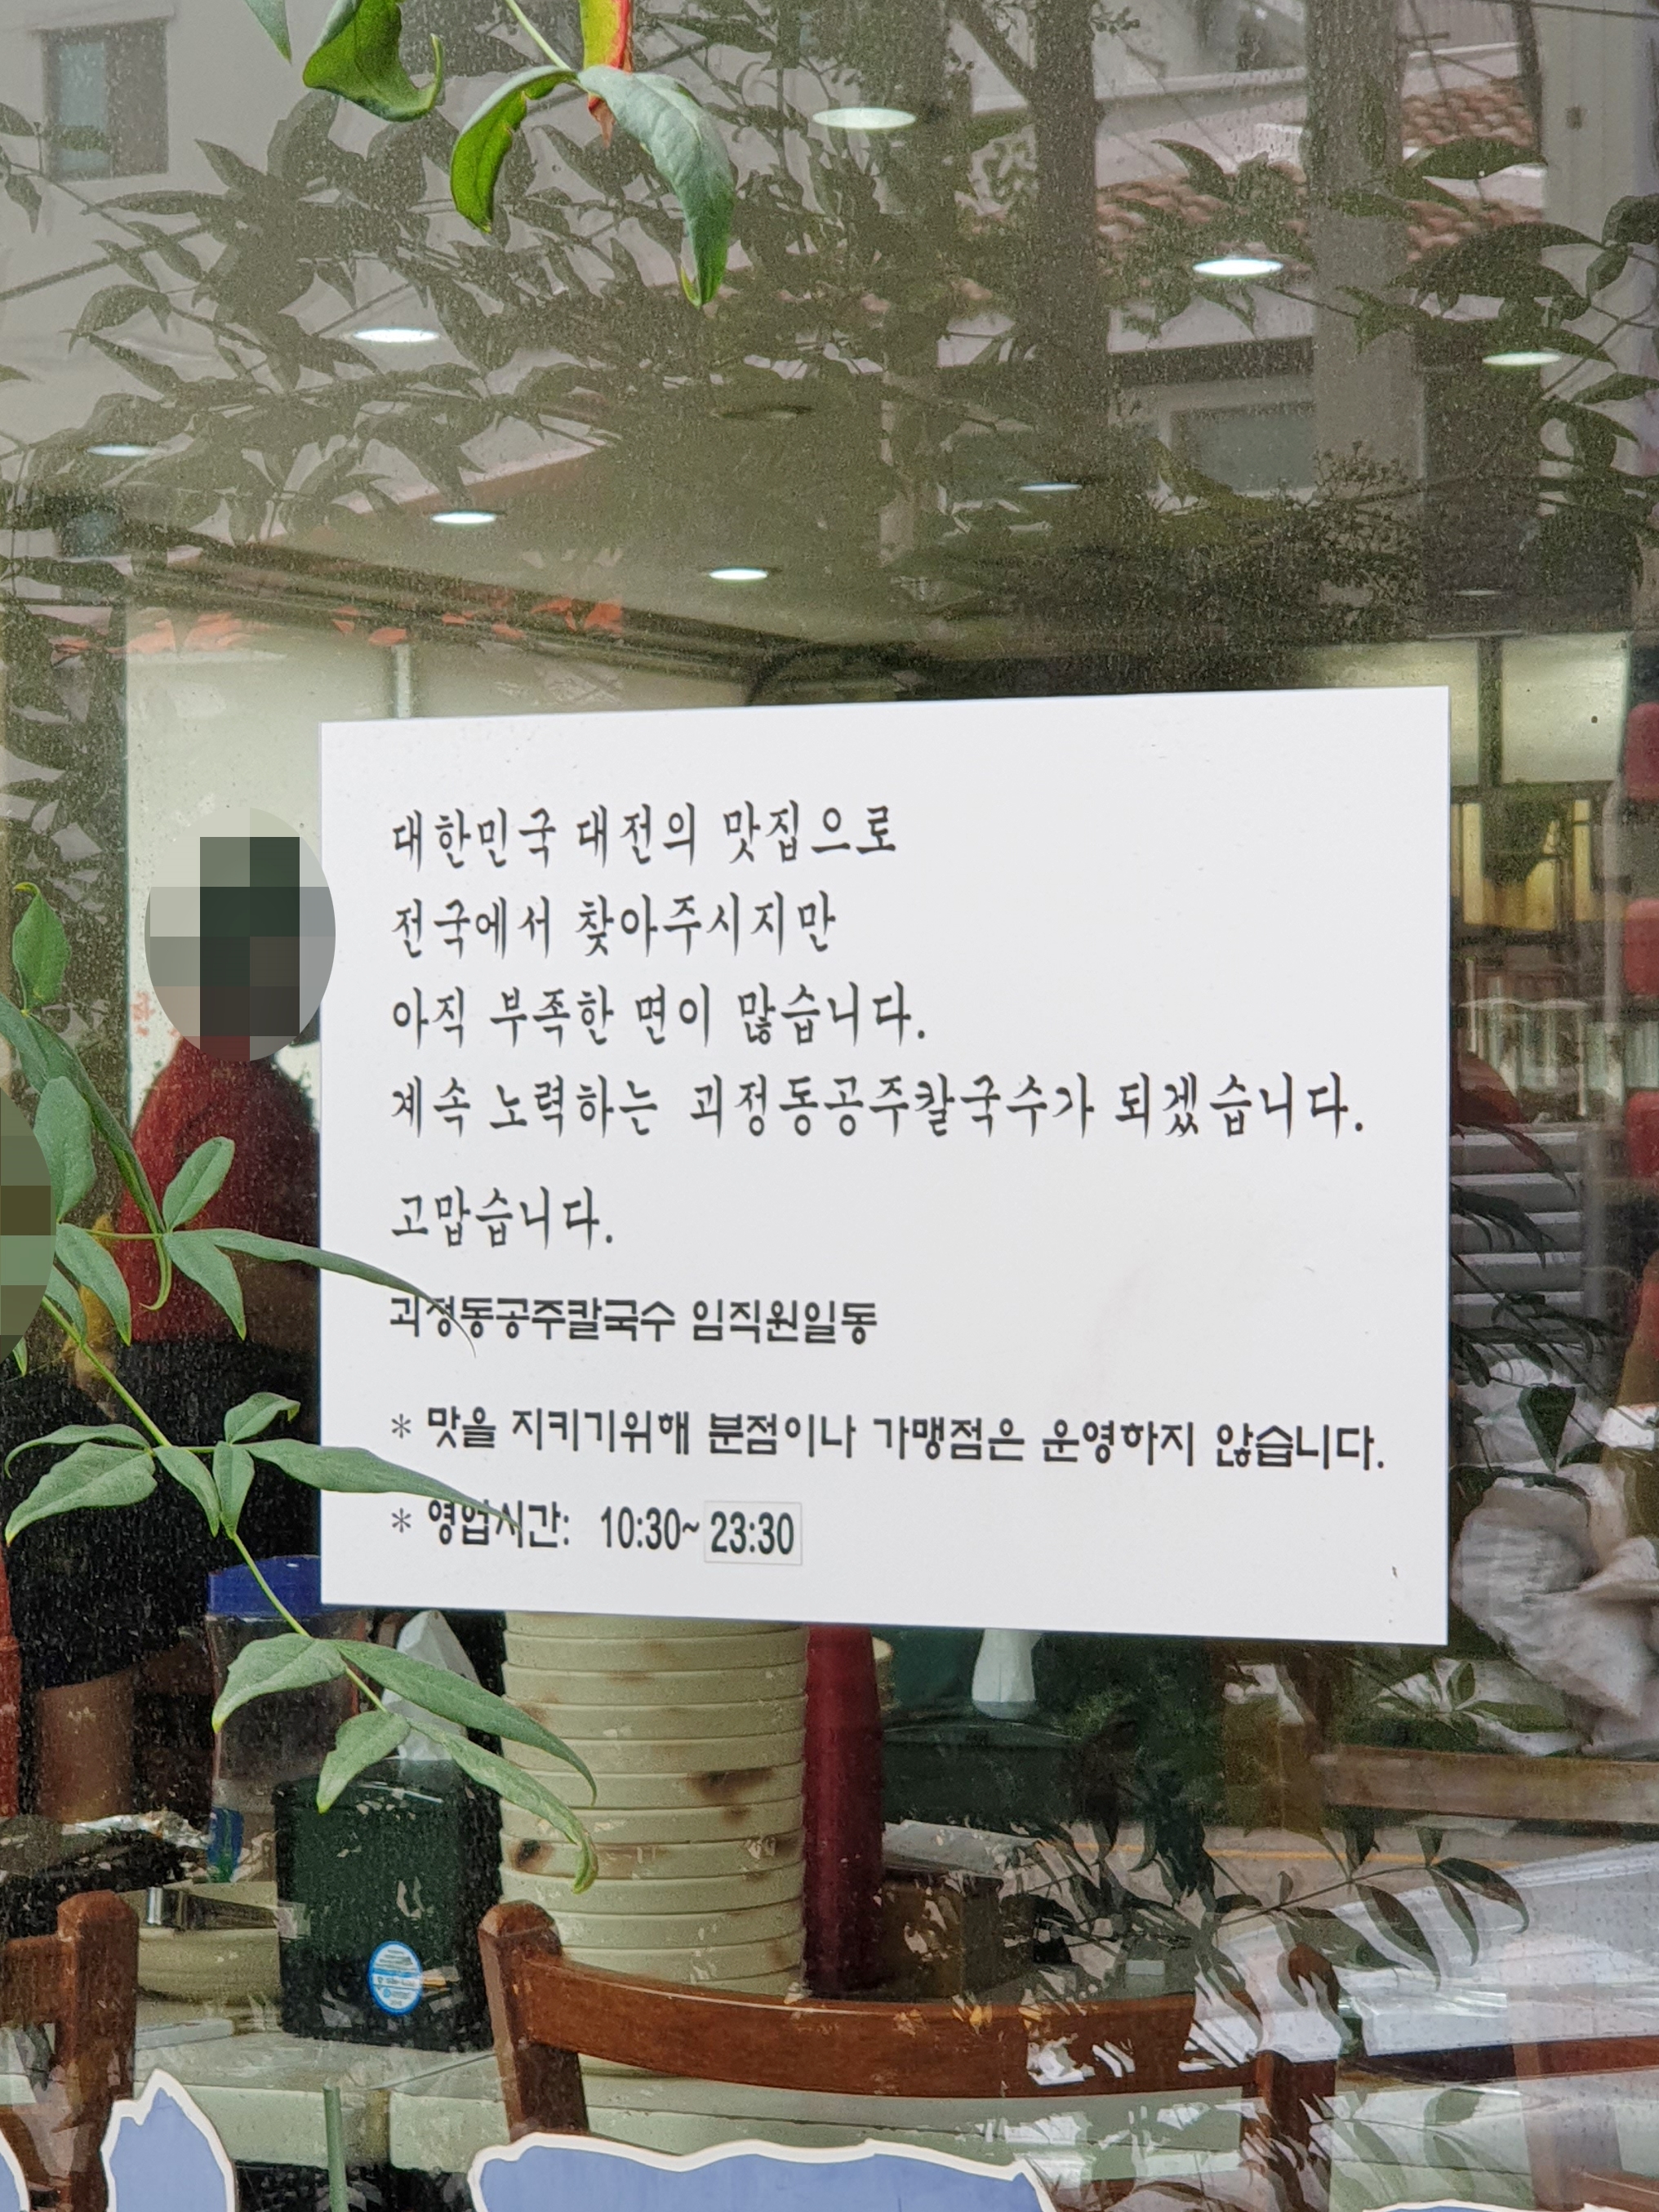 대한민국 대전의 맛집으로
전국에서 찾아주시지만
아직 부족한 면이 많습니다.
계속 노력하는 괴정동공주칼국수가 되겠습니다.
고맙습니다.
괴정동공주칼국수 임직원일동
* 맛을 지키기위해 분점이나 가맹점은 운영하지 않습니다.
* 영업시간: 10:30~ 23:30